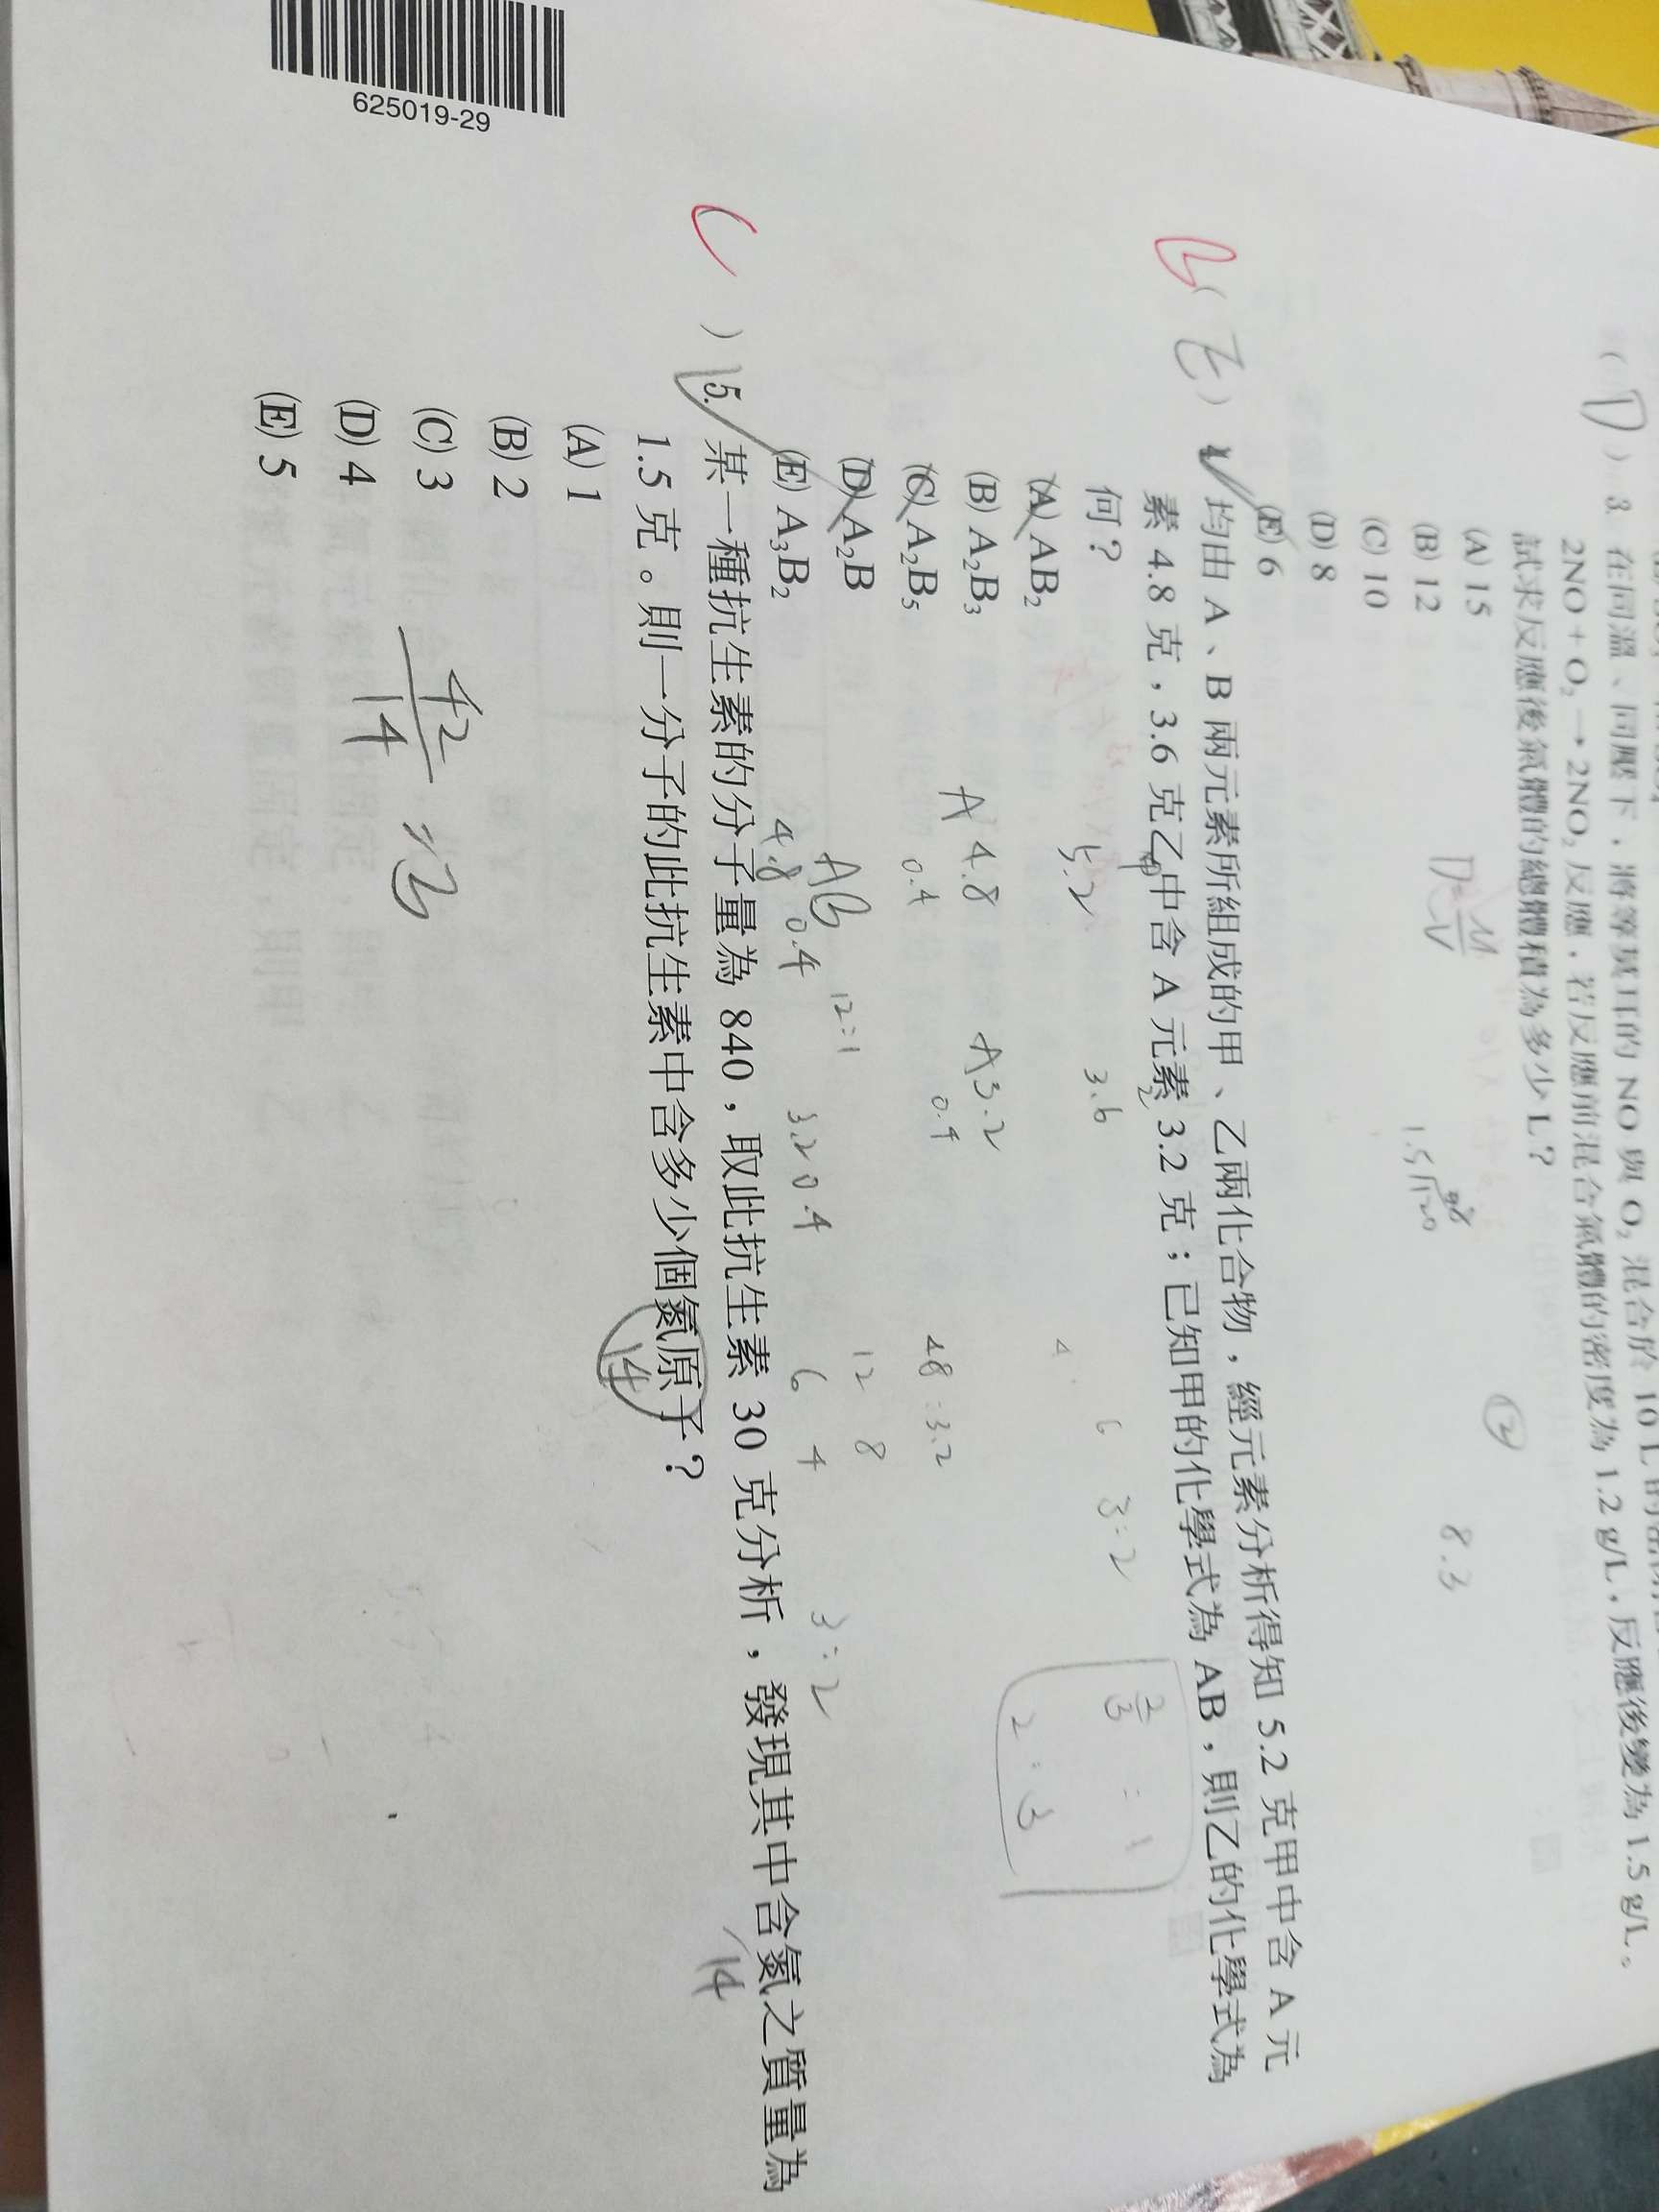 3. 在同溫、同壓下，將等莫耳的 NO 與 O₂ 混合於 10 L
2NO + O₂ → 2NO₂ 反應，若反應前混合氣體的密度為 1.2 g/L，反應後變為 1.5 g/L。
試求反應後氣體的總體積為多少 L？
(A) 15
(B) 12
(C) 10
(D) 8
(E) 6
D=M/V
1.5
120
8.3
2
B
( E )
均由 A、B 兩元素所組成的甲、乙兩化合物，經元素分析得知 5.2 克甲中含 A 元
素 4.8 克，3.6 克乙中含 A 元素 3.2 克；已知甲的化學式為 AB，則乙的化學式為
何？
(A) AB₂
(B) A₂B₃
(C) A₂B₅
(D) A₂B
(E) A₃B₂
5.2
3.6
3:2
A 4.8
A3.2
0.4
0.4
48:3.2
2/3 : 1
2:3
AB
12:1
12 8
4.8 0.4
3.2 0.4
6 4
3:2
C
) 5. 某一種抗生素的分子量為 840，取此抗生素 30 克分析，發現其中含氮之質量為
1.5 克。則一分子的此抗生素中含多少個氮原子？
14
14
(A) 1
(B) 2
(C) 3
(D) 4
(E) 5
42/14
625019-29